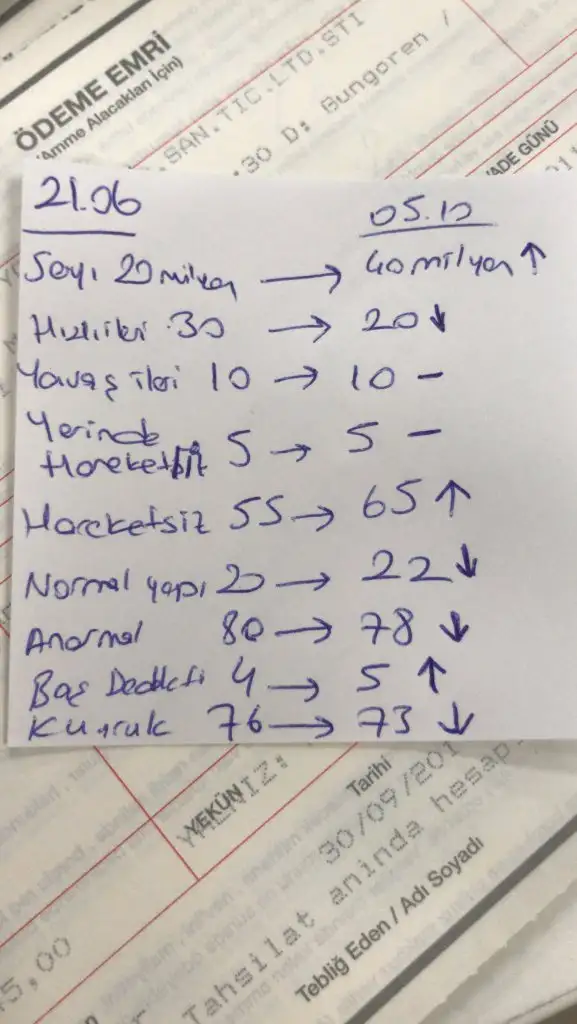 ÖDEME EMRİ
(Amme Alacakları İçin)
.SAN.TIC.LTD.STI
.30 D: Gungoren /
VADE GÜNÜ
21.06 05.10
Sayı 20 milyon → 40 milyon ↑
Hızlı ileri 30 → 20 ↓
Yavaş ileri 10 → 10 -
Yerinde
Hareketli 5 → 5 -
Hareketsiz 55 → 65 ↑
Normal yapı 20 → 22 ↓
Anormal 80 → 78 ↓
Baş Defekti 4 → 5 ↑
Kuyruk 76 → 73 ↓
YEKÜN
YALNIZ:
Tarihi
30/09/201
Tahsilat aninda hesap
5,00
Tebliğ Eden / Adı Soyadı